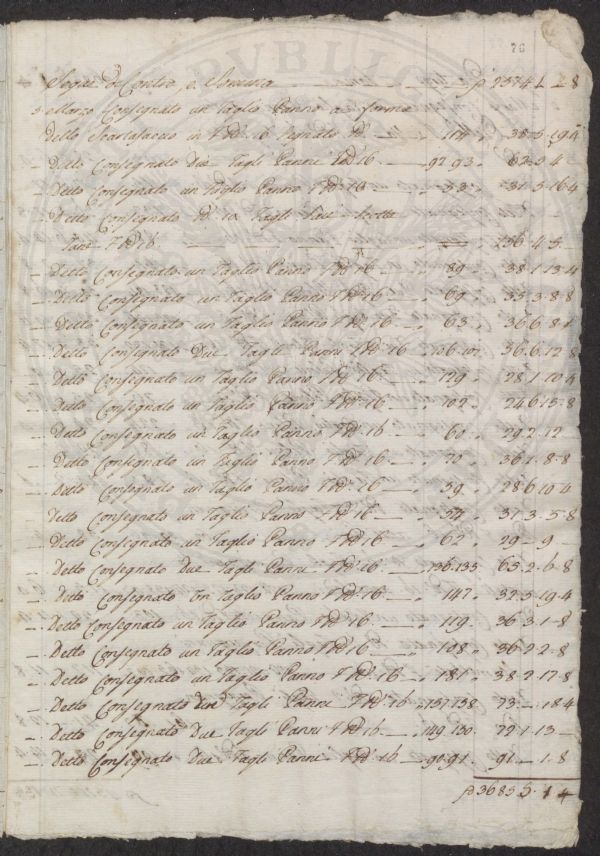 76
Segue di Contro, e Somma p 2374 1 - 8
5 Marzo Consegnato un Taglio Panno a forma
dello Scartafaccio in F Pd 16 segnato N° 114 38.5.19.4
Detto Consegnato Due Tagli Panni F Pd 16 92 93 62.0.4
Detto Consegnato un Taglio Panno F Pd 16 31.5.16.4
Detto Consegnato
F Pd 16 236.4.5
Detto Consegnato un Taglio Panno F Pd 16 89 38.1.13.4
Detto Consegnato un Taglio Panno F Pd 16 69 33.3.8.8
Detto Consegnato un Taglio Panno F Pd 16 63 36.6.8.4
Detto Consegnato Due Tagli Panni F Pd 16 36.6.12.8
Detto Consegnato un Taglio Panno F Pd 16 129 28.1.10.4
Detto Consegnato un Taglio Panno F Pd 16 102 24.6.15.8
Detto Consegnato un Taglio Panno F Pd 16 60 29.2.12
Detto Consegnato un Taglio Panno F Pd 16 70 36.1.8.8
Detto Consegnato un Taglio Panno F Pd 16 59 28.6.10.4
Detto Consegnato un Taglio Panno F Pd 16 54 31.3.5.8
Detto Consegnato un Taglio Panno F Pd 16 62 29 - 9 -
Detto Consegnato due Tagli Panni F Pd 16 136.135 65.2.6.8
Detto Consegnato un Taglio Panno F Pd 16 147 32.5.19.4
Detto Consegnato un Taglio Panno F Pd 16 119 36.3.1.8
Detto Consegnato un Taglio Panno F Pd 16 108 36.2.2.8
Detto Consegnato un Taglio Panno F Pd 16 181 38.2.17.8
Detto Consegnato due Tagli Panni F Pd 16 137 138 73 - 18.4
Detto Consegnato Due Tagli Panni F Pd 16 149 130 72.1.13
Detto Consegnato Due Tagli Panni F Pd 16 90.91 91 - 1.8
p 3685 5.1 4